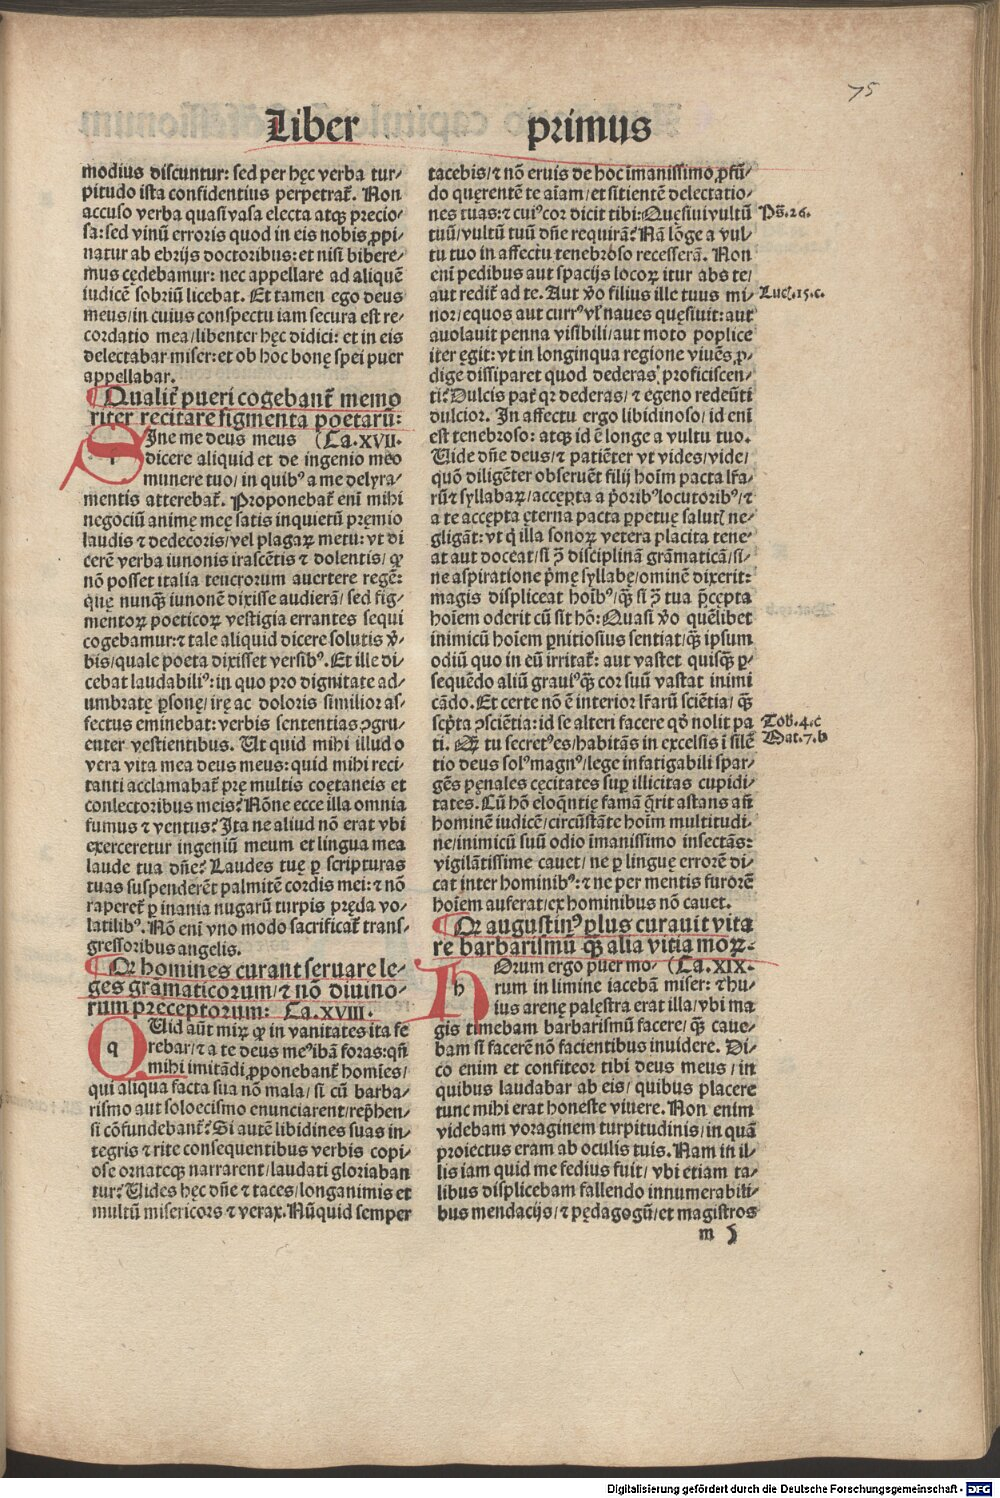 75
Liber primus
modius discuntur: sed per hęc verba tur⸗
pitudo ista confidentius perpetrat᷑. Non
accuso verba quasi vasa electa atqꝫ precio⸗
sa: sed vinū erroris quod in eis nobis ꝓpi⸗
natur ab ebrijs doctoribus: et nisi bibere⸗
mus cędebamur: nec appellare ad aliquē
iudicē sobriū licebat. Et tamen ego deus
meus/ in cuius conspectu iam secura est re⸗
cordatio mea/ libenter hęc didici: et in eis
delectabar miser: et ob hoc bonę spei puer
appellabar.
¶ Qualit᷑ pueri cogebant᷑ memo
riter recitare figmenta poetarū:
SIne me deus meus (Ca.XVII.
dicere aliquid et de ingenio meo
munere tuo/ in quibꝰ a me delyra⸗
mentis atterebat᷑. Proponebat᷑ enī mihi
negociū animę meę satis inquietū pręmio
laudis ⁊ dedecoris/ vel plagaꝝ metu: vt di
cerē verba iunonis irascētis ⁊ dolentis/ ꝙ
nō posset italia teucrorum auertere regē:
quę nunqꝫ̄ iunonē dixisse audierā/ sed fig⸗
mentoꝝ poeticoꝝ vestigia errantes sequi
cogebamur: ⁊ tale aliquid dicere solutis v̄⸗
bis/ quale poeta dixisset versibꝰ. Et ille di⸗
cebat laudabiliꝰ: in quo pro dignitate ad⸗
umbratę ꝑsonę/ irę ac doloris similior af⸗
fectus eminebat: verbis sententias ꝯgru⸗
enter vestientibus. Vt quid mihi illud o
vera vita mea deus meus: quid mihi reci⸗
tanti acclamabat᷑ prę multis coętaneis et
conlectoribus meis? Nōne ecce illa omnia
fumus ⁊ ventus? Ita ne aliud nō erat vbi
exerceretur ingeniū meum et lingua mea
laude tua dn̄e? Laudes tuę ꝑ scripturas
tuas suspenderēt palmitē cordis mei: ⁊ nō
raperet᷑ ꝑ inania nugarū turpis pręda vo⸗
latilibꝰ. Nō enī vno modo sacrificat᷑ trans⸗
gressoribus angelis.
¶ Qꝙ homines curant seruare le⸗
ges grāmaticorum/ ⁊ nō diuino⸗
rum preceptorum: Ca.XVIII.
QVid aūt miꝝ ꝙ in vanitates ita fe
rebar/ ⁊ a te deus meꝰ ibā foras: qn̄
mihi imitādi ꝓponebant᷑ homīes/
qui aliqua facta sua nō mala/ si cū barba⸗
rismo aut soloecismo enunciarent/ rep̄hen⸗
si cōfundebant᷑? Si autē libidines suas in⸗
tegris ⁊ rite consequentibus verbis copi⸗
ose ornateqꝫ narrarent/ laudati gloriaban
tur? Vides hęc dn̄e ⁊ taces/ longanimis et
multū misericors ⁊ verax. Nūquid semper
tacebis/ ⁊ nō eruis de hoc īmanissimo ꝓfū⸗
do quęrentē te aīam/ et sitientē delectatio⸗
nes tuas: ⁊ cuiꝰ cor dicit tibi: Quęsiui vultū
tuū/ vultū tuū dn̄e requirā? Nā lōge a vul⸗
tu tuo in affectu tenebroso recesserā. Non
enī pedibus aut spacijs locoꝝ itur abs te/
aut redit᷑ ad te. Aut v̄o filius ille tuus mi⸗
nor/ equos aut currꝰ vl̓ naues quęsiuit: aut
auolauit penna visibili/ aut moto poplice
iter ęgit: vt in longinqua regione viuēs ꝓ⸗
dige dissiparet quod dederas proficiscen⸗
ti? Dulcis pat᷑ qꝛ dederas/ ⁊ egeno redeūti
dulcior. In affectu ergo libidinoso/ id enī
est tenebroso: atqꝫ id ē longe a vultu tuo.
Vide dn̄e deus/ ⁊ patiēter vt vides/ vide/
quō diligēter obseruēt filij hoīm pacta lr̄a⸗
rū ⁊ syllabaꝝ/ accepta a p̄oribꝰ locutoribꝰ/ ⁊
a te accępta ęterna pacta ꝑpetuę salut᷑ ne⸗
gligāt: vt q̄ illa sonoꝝ vetera placita tene⸗
at aut doceat/ si ꝯ̄ disciplinā grāmaticā/ si⸗
ne aspiratione p̄mę syllabę/ ominē dixerit:
magis displiceat hoībꝰ/ qꝫ̄ si ꝯ̄ tua p̄cępta
hoīem oderit cū sit hō: Quasi v̄o quēlibet
inimicū hoīem ꝑnitiosius sentiat/ qꝫ̄ ipsum
odiū quo in eū irritat᷑: aut vastet quisqꝫ̄ ꝑ⸗
sequēdo aliū grauiꝰ qꝫ̄ cor suū vastat inimi
cādo. Et certe nō ē interior lr̄arū sciētia/ qꝫ̄
scp̄ta ꝯsciētia: id se alteri facere qd̓ nolit pa
ti. Qꝫ̄ tu secretꝰ es/ habitās in excelsis ī silē
tio deus solꝰ magnꝰ/ lege infatigabili spar⸗
gēs pęnales cęcitates suꝑ illicitas cupidi⸗
tates. Cū hō eloq̄ntię famā q̄rit astans an̄
hominē iudicē/ circūstāte hoīm multitudi⸗
ne/ inimicū suū odio īmanissimo insectās:
vigilātissime cauet/ ne ꝑ linguę errorē di⸗
cat inter hominibꝰ: ⁊ ne per mentis furorē
hoīem auferat/ ex hominibus nō cauet.
¶ Qꝙ augustinꝰ plus curauit vita
re barbarismū qꝫ̄ alia vitia moꝝ.
HOrum ergo puer mo⸗ (Ca.XIX.
rum in limine iacebā miser: ⁊ hu⸗
ius arenę palęstra erat illa/ vbi ma
gis timebam barbarismū facere/ qꝫ̄ caue⸗
bam si facerē nō facientibus inuidere. Di⸗
co enim et confiteor tibi deus meus/ in
quibus laudabar ab eis/ quibus placere
tunc mihi erat honeste viuere. Non enim
videbam voraginem turpitudinis/ in quā
proiectus eram ab oculis tuis. Nam in il⸗
lis iam quid me fedius fuit/ vbi etiam ta⸗
libus displicebam fallendo innumerabili⸗
bus mendacijs/ ⁊ pędagogū/ et magistros
m 5
Ps̄.26.
Luc᷑.15.c.
Tob.4.c
Mat.7.b
Digitalisierung gefördert durch die Deutsche Forschungsgemeinschaft - DFG